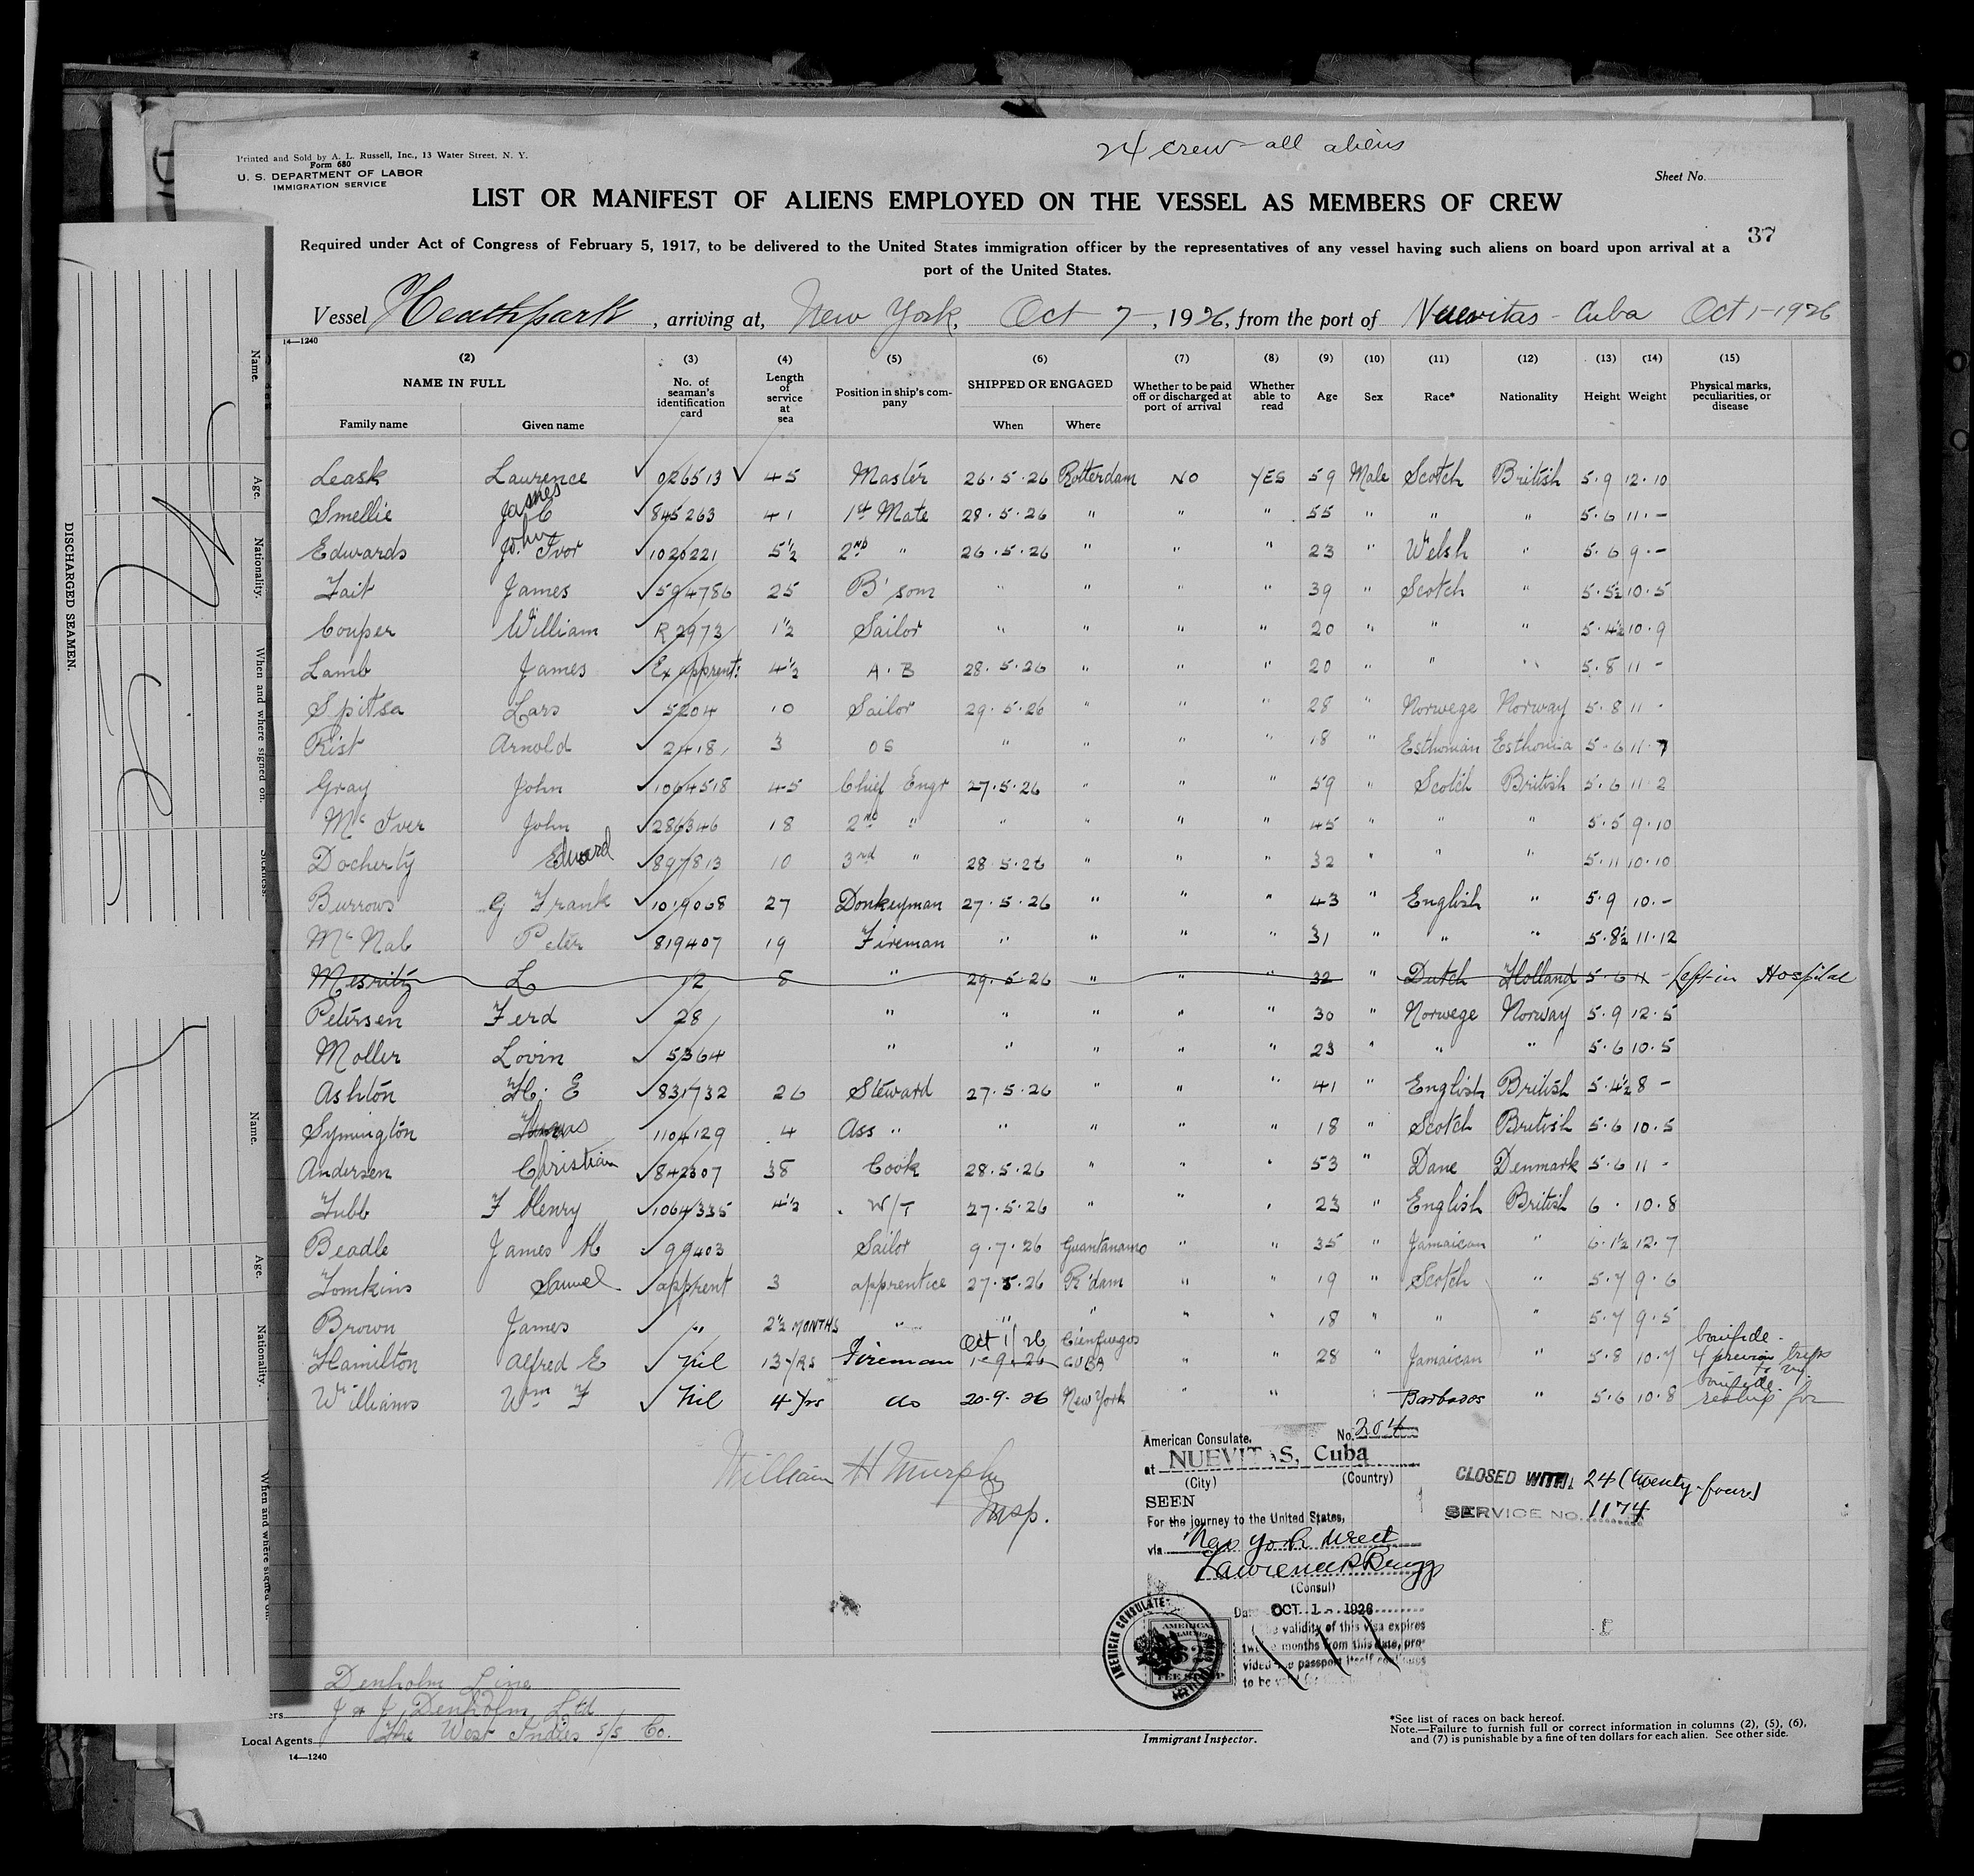 24 crew - all aliens
Printed and Sold by A. L. Russell, Inc., 13 Water Street, N. Y.
Form 680
U. S. DEPARTMENT OF LABOR
IMMIGRATION SERVICE
Sheet No.
LIST OR MANIFEST OF ALIENS EMPLOYED ON THE VESSEL AS MEMBERS OF CREW
37
Required under Act of Congress of February 5, 1917, to be delivered to the United States immigration officer by the representatives of any vessel having such aliens on board upon arrival at a
port of the United States.
Vessel Heathpark, arriving at, New York, Oct 7, 1926, from the port of Nuevitas - Cuba Oct 1-1926
14—1240
(2) (3) (4) (5) (6) (7) (8) (9) (10) (11) (12) (13) (14) (15)
NAME IN FULL No. of seaman's identification card Length of service at sea Position in ship's company SHIPPED OR ENGAGED Whether to be paid off or discharged at port of arrival Whether able to read Age Sex Race* Nationality Height Weight Physical marks, peculiarities, or disease
Family name Given name When Where
Leask Laurence 026513 45 Master 26.5.26 Rotterdam NO YES 59 Male Scotch British 5.9 12.10
Smellie James C 845263 41 1st Mate 28.5.26 " " " 55 " " " 5.6 11.-
Edwards John Ivor 1026221 5½ 2ND " 26.5.26 " " " 23 " Welsh " 5.6 9.-
Tait James 594786 25 B'som " " " " 39 " Scotch " 5.5½ 10.5
Couper William R 2973 1½ Sailor " " " " 20 " " " 5.4½ 10.9
Lamb James Ex apprent: 4½ A.B 28.5.26 " " " 20 " " " 5.8 11 -
Spitsa Lars 5204 10 Sailor 29.5.26 " " " 28 " Norwege Norway 5.8 11 -
Rist Arnold 2418 3 OS " " " " 18 " Esthonian Esthonia 5.6 11.7
Gray John 1064518 45 Chief Engr 27.5.26 " " " 59 " Scotch British 5.6 11.2
McIver John 286346 18 2ND " " " " " 45 " " " 5.5 9.10
Docherty Edward 897813 10 3rd " 28.5.26 " " " 32 " " " 5.11 10.10
Burrows G Frank 1019068 27 Donkeyman 27.5.26 " " " 43 " English " 5.9 10.-
McNab Peter 819407 19 Fireman " " " " 31 " " " 5.8½ 11.12
Mesritz L 12 8 " 29.5.26 " " " 32 " Dutch Holland 5.6 11 - Left in Hospital
Petersen Ferd 28 " " " " " 30 " Norwege Norway 5.9 12.5
Moller Lovin 5364 " " " " " 23 " " " 5.6 10.5
Ashton H. E 831732 26 Steward 27.5.26 " " " 41 " English British 5.4½ 8 -
Symington Thomas 1104129 4 Ass " " " " " 18 " Scotch British 5.6 10.5
Andersen Christian 842307 38 Cook 28.5.26 " " " 53 " Dane Denmark 5.6 11 -
Tubb F Henry 1064335 4½ W/T 27.5.26 " " " 23 " English British 6 . 10.8
Beadle James H 99403 Sailor 9.7.26 Guantanamo " " 35 " Jamaican " 6.1½ 12.7
Tomkins Samuel apprent 3 apprentice 27.5.26 R'dam " " 19 " Scotch " 5.7 9.6
Brown James " 2½ MONTHS " " " " " 18 " " " 5.7 9.5
Hamilton Alfred E Nil 13 YRS Fireman Oct 1/26 1-9-26 Cienfuegos CUBA " " 28 " Jamaican " 5.8 10.7 bonifide - 4 previous trips to
Williams Wm F Nil 4 yrs do 20-9-26 New York " " " Barbados " 5.6 10.8 bonifide reship for
William H Murphy
Insp.
American Consulate, No. 204
at NUEVITAS, Cuba
(City) (Country)
SEEN
For the journey to the United States,
via New York direct
(Consul)
Date OCT 1 - 1926
The validity of this visa expires
twelve months from this date, pro-
vided the passport itself continues
to be valid for
AMERICAN CONSULATE
CLOSED WITH 24 (twenty-four)
SERVICE NO. 1174
Denholm Line
J & J Denholm Ltd
Local Agents The West Indies S/S Co.
14—1240
Immigrant Inspector.
*See list of races on back hereof.
Note.—Failure to furnish full or correct information in columns (2), (5), (6),
and (7) is punishable by a fine of ten dollars for each alien. See other side.
DISCHARGED SEAMEN.
Name.
Age.
Nationality.
When and where signed on.
Sickness.
Name.
Age.
Nationality.
When and where signed on.